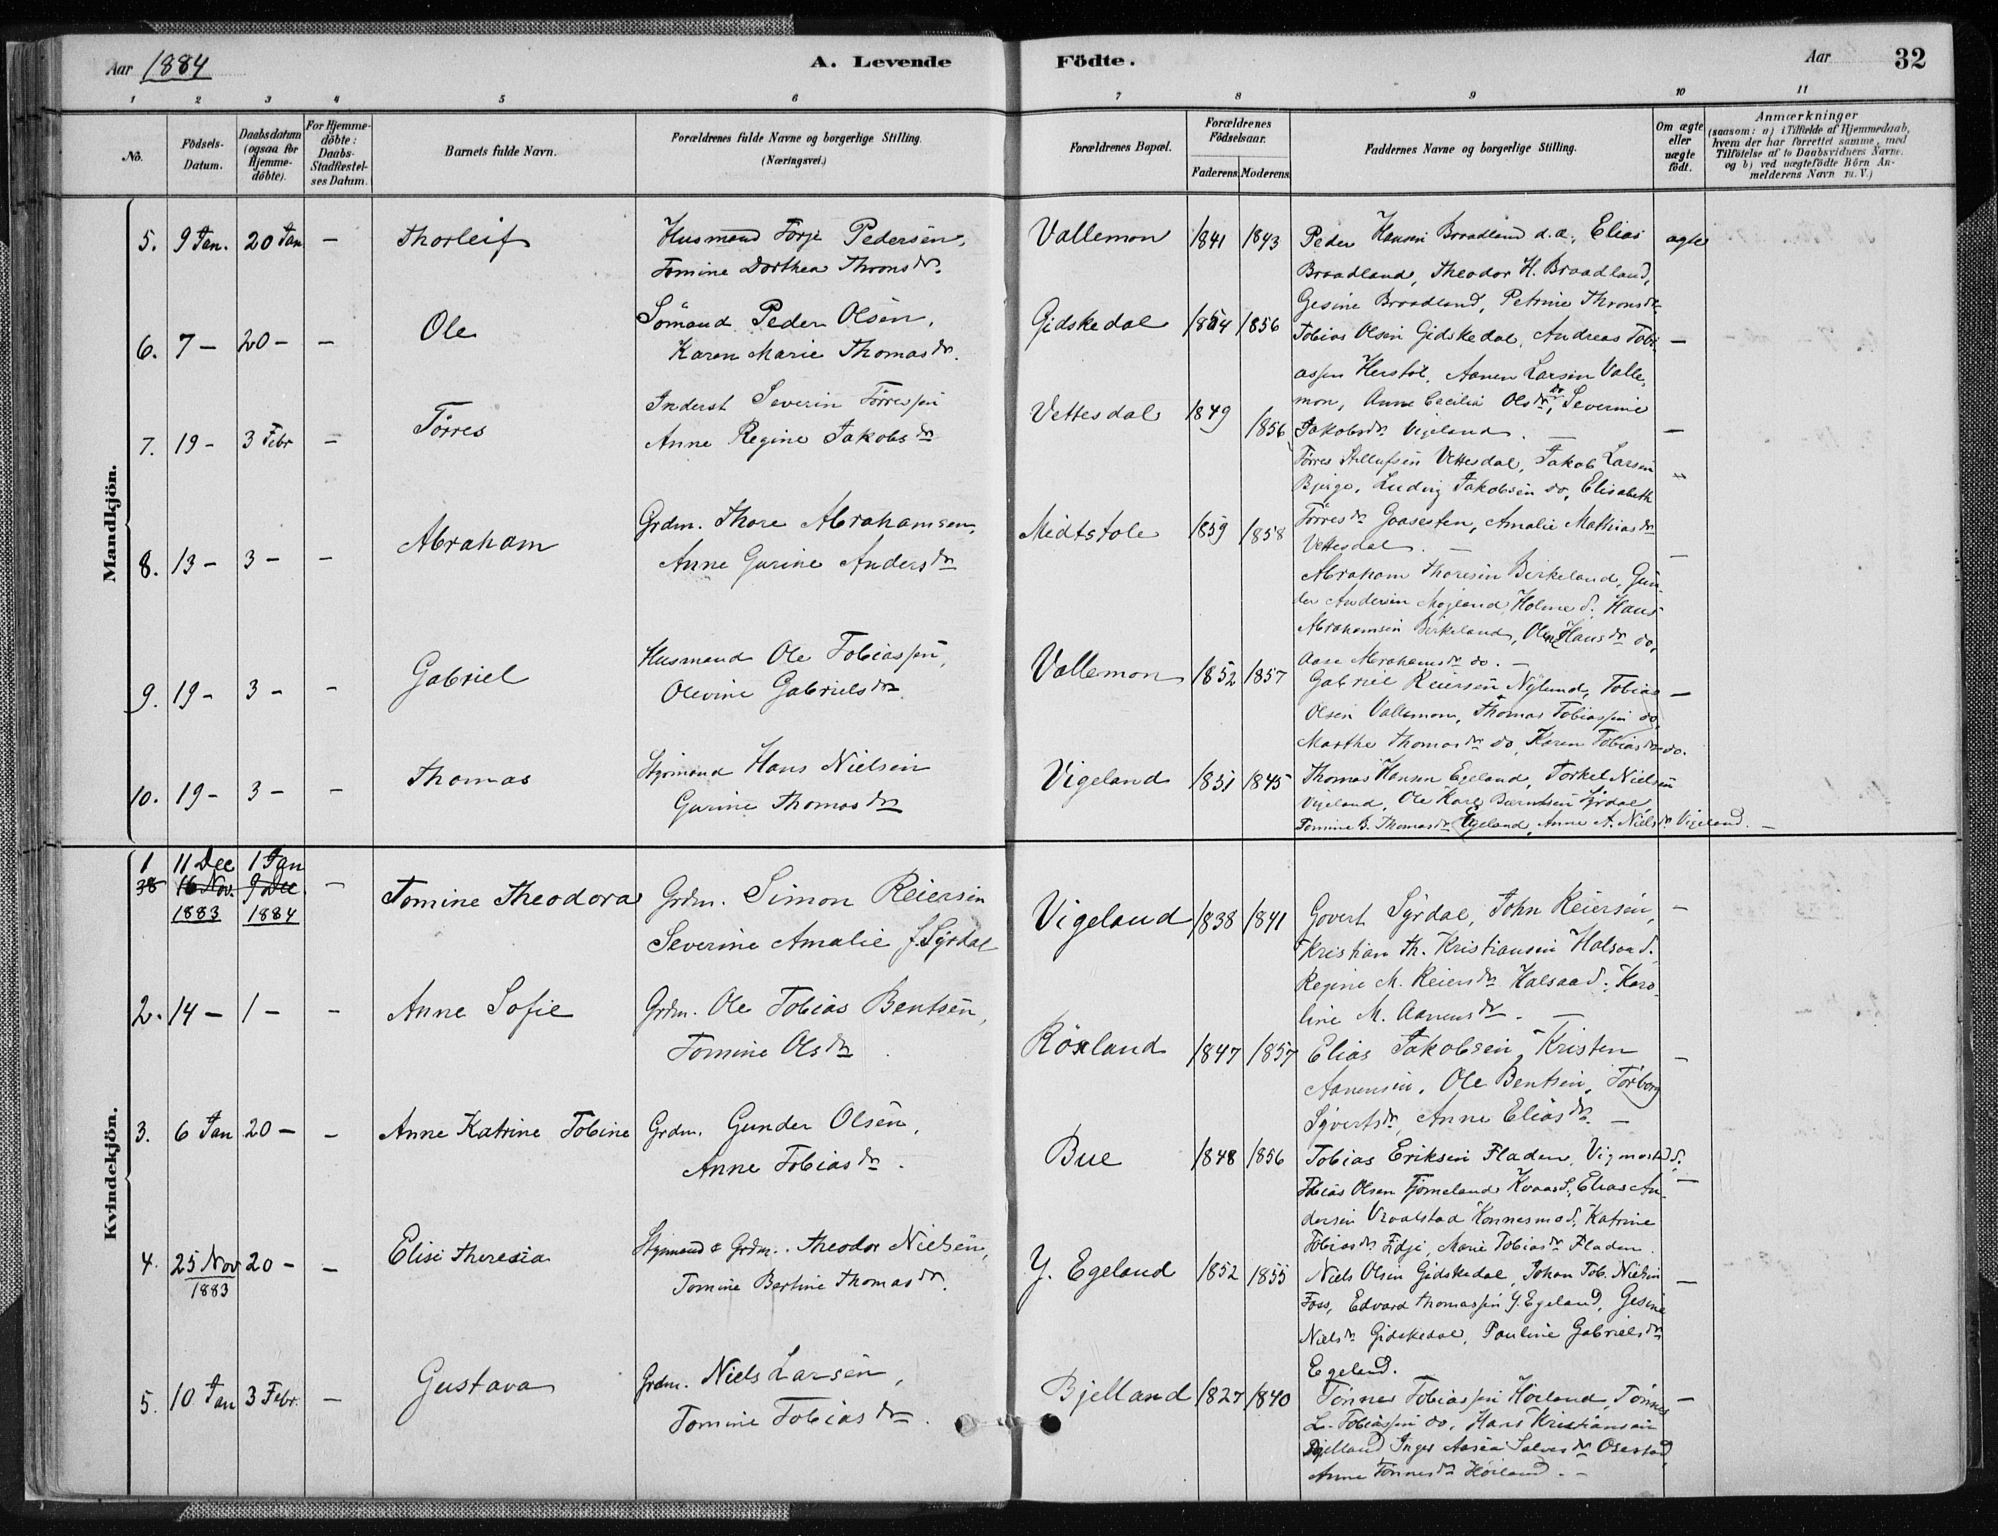 Aar 1884
A. Levende Födte.
Aar
32
1 2 3 4 5 6 7 8 9 10 11
No.
Födsels-Datum.
Daabsdatum (ogsaa for Hjemme-döbte).
For Hjemme-döbte: Daabs-Stadfæstel-ses Datum.
Barnets fulde Navn.
Forældrenes fulde Navne og borgerlige Stilling. (Næringsvei.)
Forældrenes Bopæl.
Forældrenes Födselsaar.
Faderens. Moderens.
Faddernes Navne og borgerlige Stilling.
Om ægte eller uægte födt.
Anmærkninger
(saasom: a) i Tilfælde af Hjemmedaab, hvem der har forrettet samme, med Tilföielse af to Daabsvidners Navne. og b) ved uægtefödte Börn An-melderens Navn m. V.)
Mandkjön.
5. 9 Jan. 20 Jan – Thorleif
Husmand Pedersen,
Tomine Dorthea Throns dr.
Vallemon 1841 1843
Peder Hansen Braadland d.a., Elias
Braadland, Theodor H. Braadland,
Gesine Braadland, Petrine Throns dr
ægte
6. 7 – 20 – – Ole
Sömand Peder Olsen,
Karen Marie Thomas dr.
Gidskedal 1854 1856
Tobias Olsen Gidskedal, Andreas Tobi-
assen Herstöl, Aanen Larsen Valle-
mon, Anne Cecilie Ols dr do, Severine
Jakobs dr Vigeland. –
–
7. 19 – 3 Febr – Törres
Inderst Severin Törressen
Anne Regine Jakobs dr
Vettesdal 1849 1856
Törres Vettesdal, Jakob Larsen
Bjerge, Ludvig Jakobsen do, Elisabeth
Törres dr Gaasesten, Amalie Mathias dr
Vettesdal. –
–
8. 13 – 3 – – Abraham
Grdm. Thore Abrahamsen,
Anne Gurine Anders dr
Midtstole 1859 1858
Abraham Thoresen Birkeland, Gun-
der Andersen Möyland, Holme S. Hans
Abrahamsen Birkeland, Oline Hans dr do,
Aase Abrahams dr do. –
–
9. 19 – 3 – – Gabriel
Husmand Ole Tobiassen,
Olevine Gabriels dr.
Vallemon 1852 1857
Gabriel Reiersen Nylund, Tobias
Olsen Vallemon, Thomas Tobiassen do,
Marthe Thomas dr do, Karen Tobias dr do.
–
10. 19 – 3 – – Thomas
Styrmand Hans Nielsen
Gurine Thomas dr
Vigeland 1851 1845
Thomas Hansen Egeland, Torkel Nielsen
Vigeland, Ole Karl Berntsen Syrdal,
Tomine B. Thomas dr Egeland, Anne A. Niels dr Vigeland. –
Kvindekjön.
1 11 Dec 1 Jan
38 16 Nov. 9 Dec. –
1883 1884
Tomine Theodora
Grdm. Simon Reiersen
Severine Amalie f. Syrdal
Vigeland 1838 1841
Govert Syrdal, John Reiersen,
Kristian Th. Kristiansen Halsaa S.
Regine M. Reiers dr Halsaa S. Karo-
line M. Aanens dr. –
–
2. 14 – 1 – – Anne Sofie
Grdm. Ole Tobias Bentsen,
Tomine Ols dr.
Röxland 1847 1857
Elias Jakobsen, Kristen
Aanensen, Ole Bentsen, Torborg
Syverts dr, Anne Elias dr. –
–
3. 6 Jan 20 – – Anne Katrine Tobine
Grdm. Gunder Olsen,
Anne Tobias dr.
Bue 1848 1856
Tobias Eriksen Fladen, Vigmostad S.
Tobias Olsen Tjomeland Kvaas S, Elias An-
dersen Vraalstad Konnesmo S, Katrine
Tobias dr Fidje, Marie Tobias dr Fladen.
–
4. 25 Nov 1883 20 – – Elise Theresia
Styrmand & Grdm. Theodor Nielsen,
Tomine Bertine Thomas dr.
Y. Egeland 1852 1855
Niels Olsen Gidskedal, Johan Tob. Nielsen
Foss, Edvard Thomassen Y. Egeland, Gesine
Niels dr Gidskedal, Pauline Gabriels dr
Egeland.
–
5. 10 Jan 3 Febr. – Gustava
Grdm. Niels Larsen,
Tomine Tobias dr.
Bjelland 1827 1840
Tönnes Tobiassen Höiland, Tönnes
L. Tobiassen do, Hans Kristiansen
Bjelland, Inger Aasea Salves dr Osestad,
Anne Tönnes dr Höiland. –
–